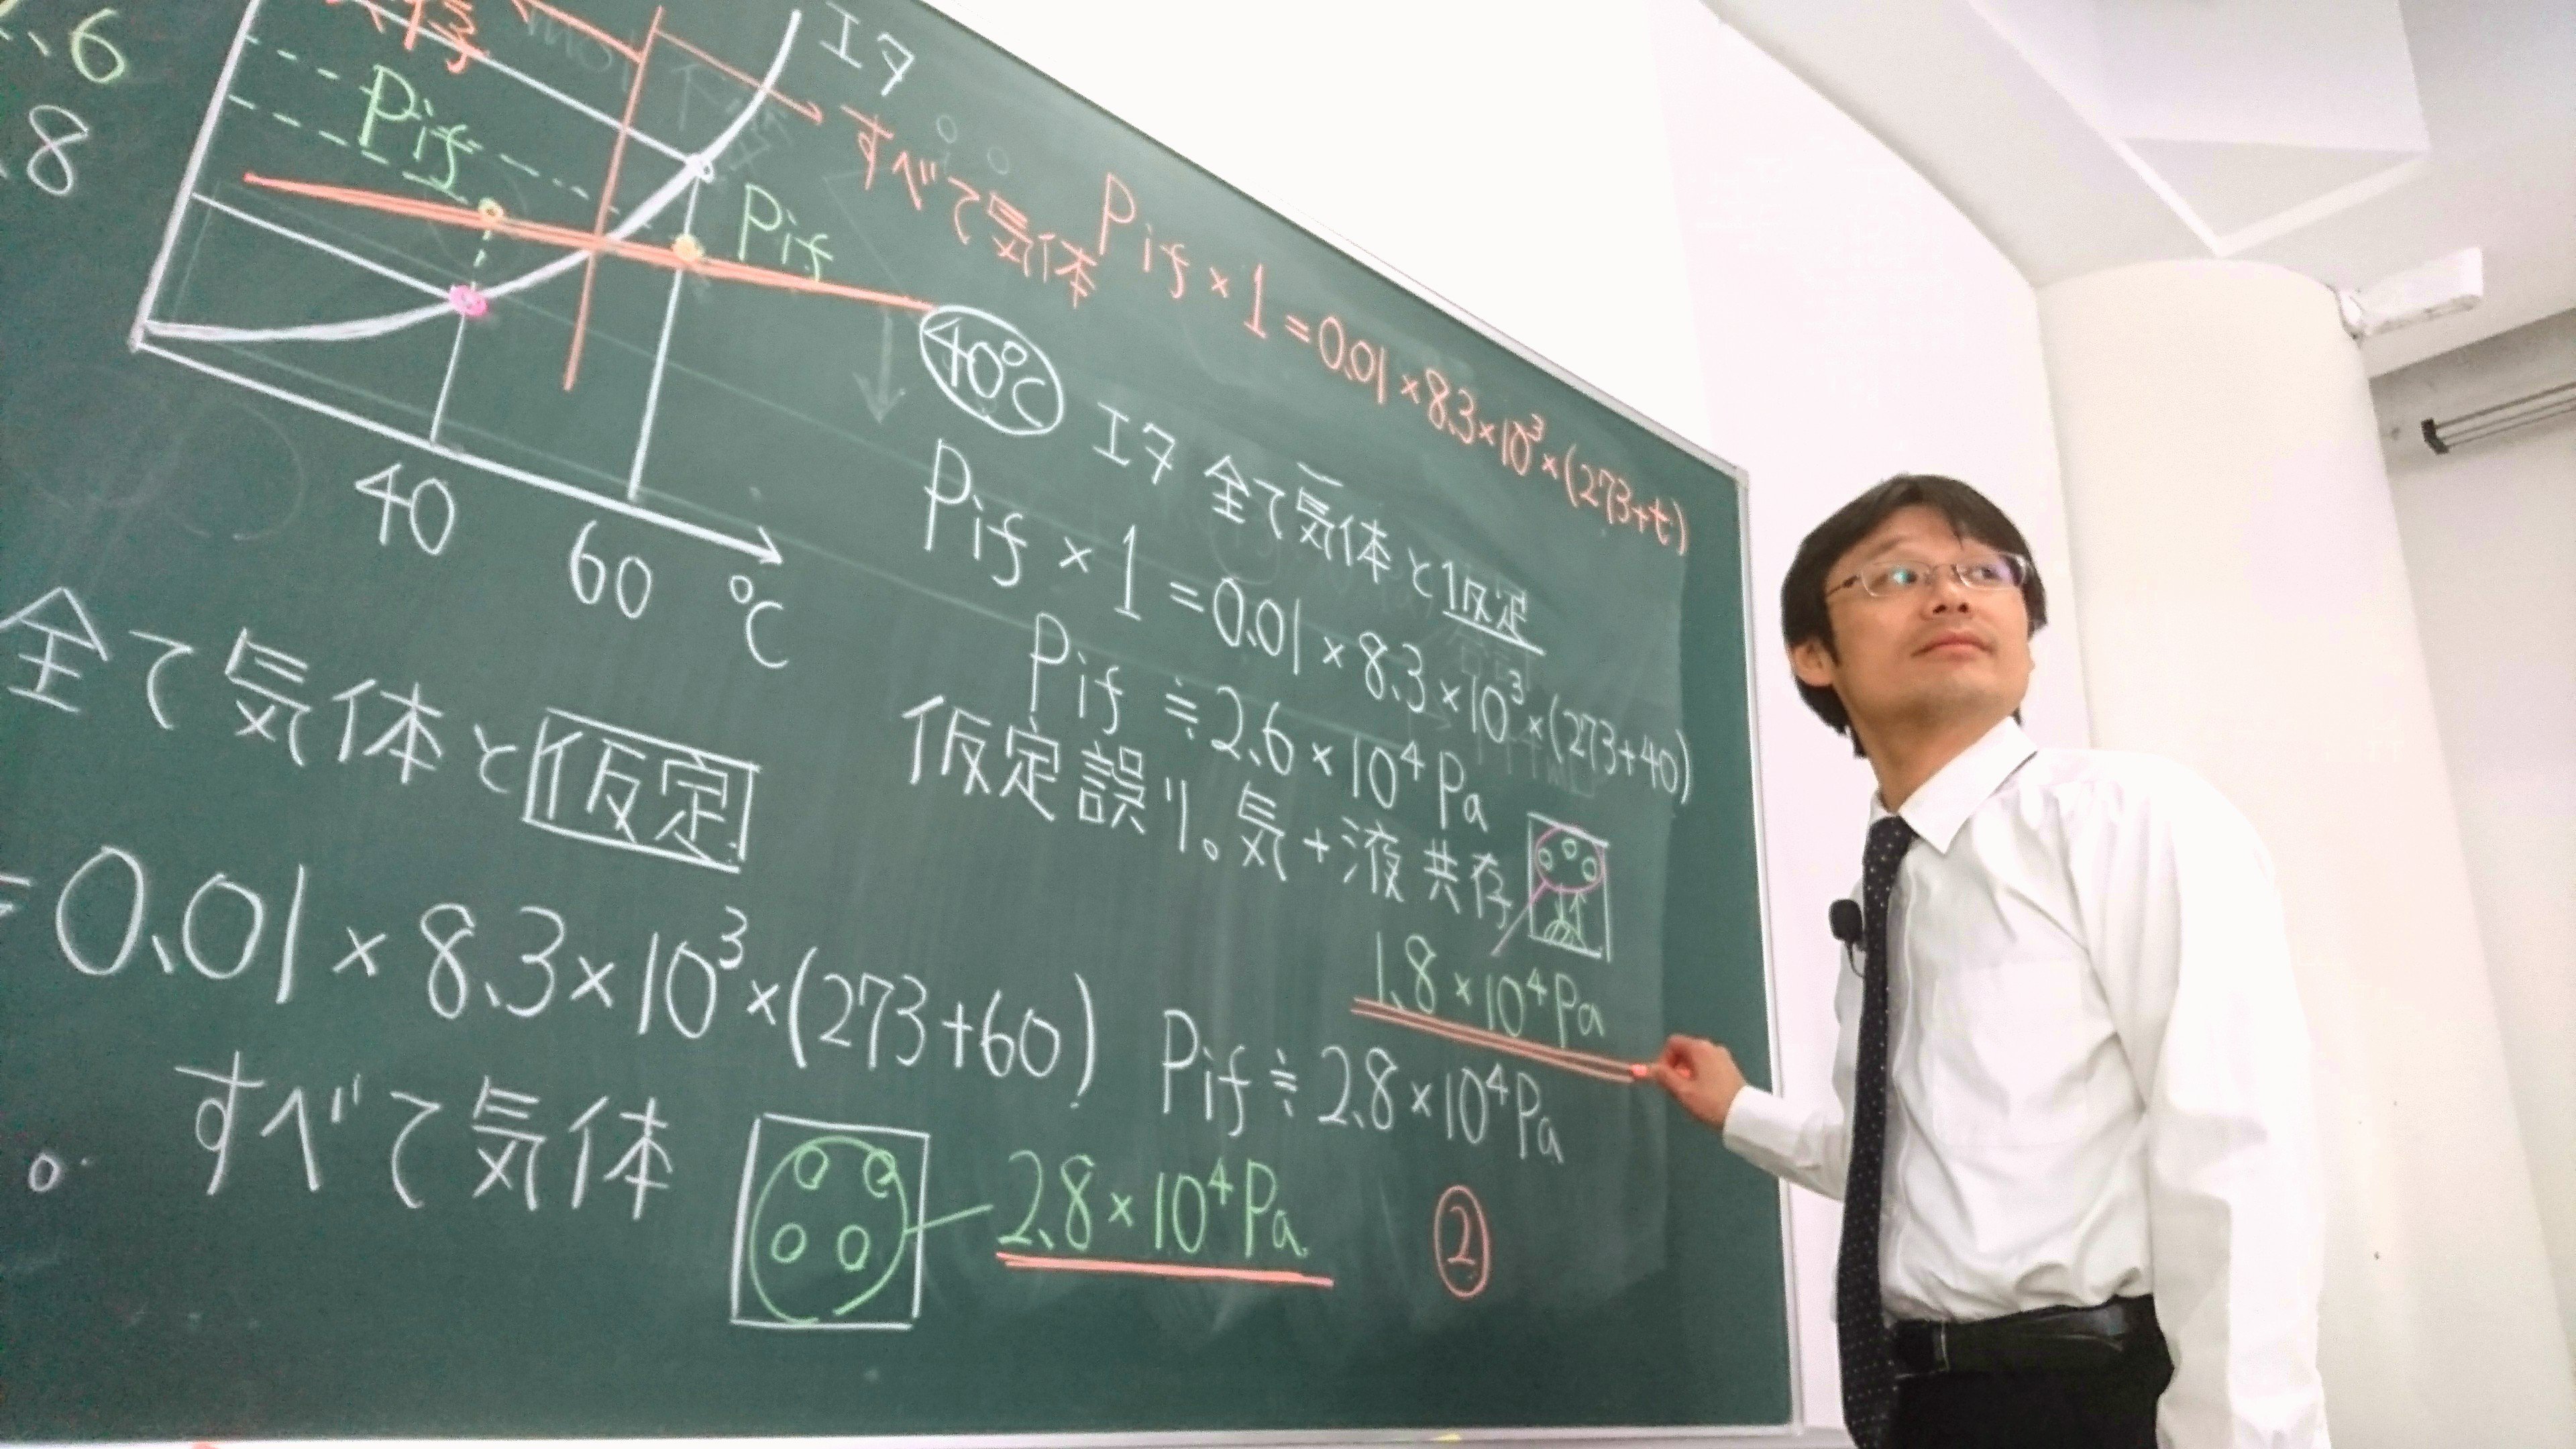 .6
.8
存
エタ
Pif
Pif
すべて気体
Pif×1=0.01×8.3×10³×(273+t)
40
60
℃
40℃
エタ 全て気体と仮定
Pif×1=0.01×8.3×10³×(273+40)
Pif≒2.6×10⁴Pa
仮定誤り。気+液 共存
1.8×10⁴Pa
全て気体と仮定
=0.01×8.3×10³×(273+60)
Pif≒2.8×10⁴Pa
すべて気体
2.8×10⁴Pa
②